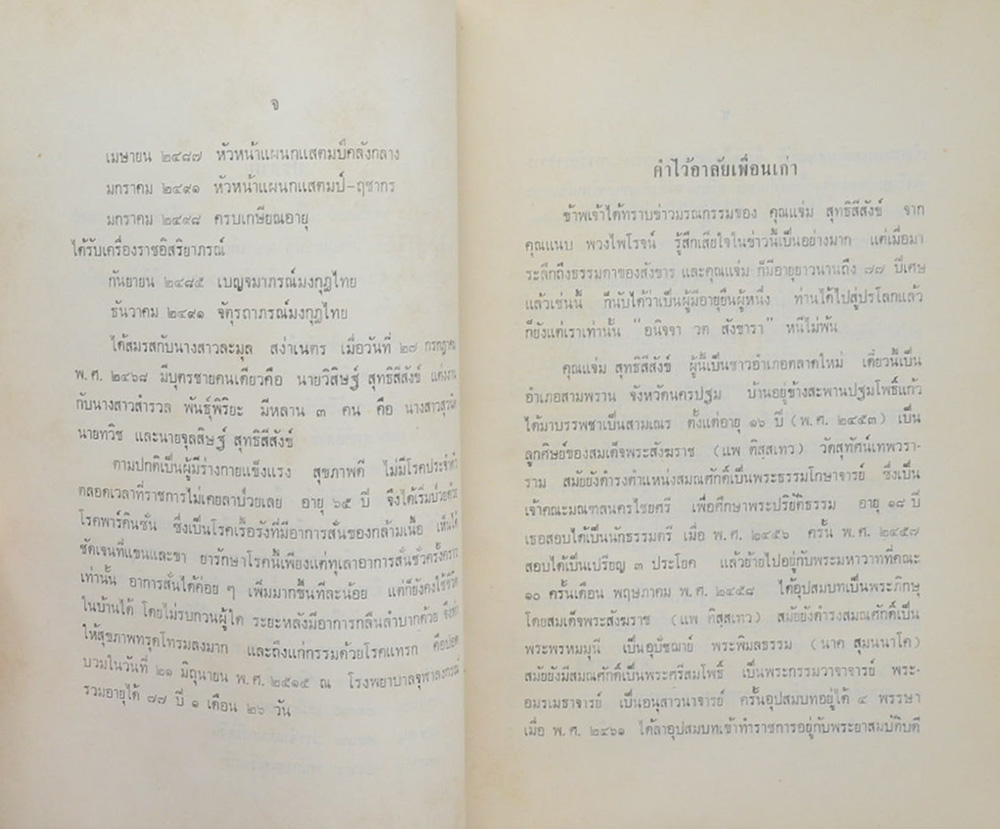 จ
เมษายน ๒๔๘๗ หัวหน้าแผนกแสตมป์คลังกลาง
มกราคม ๒๔๙๑ หัวหน้าแผนกแสตมป์-ฤชากร
มกราคม ๒๔๙๘ ครบเกษียณอายุ
ได้รับเครื่องราชอิสริยาภรณ์
กันยายน ๒๔๘๕ เบญจมาภรณ์มงกุฎไทย
ธันวาคม ๒๔๙๑ จัตุรถาภรณ์มงกุฎไทย
ได้สมรสกับนางสาวละมุล สง่าเนตร เมื่อวันที่ ๒๗ กรกฎาคม
พ.ศ. ๒๔๖๘ มีบุตรชายคนเดียวคือ นายวิสิษฐ์ สุทธิสีสังข์ แต่งงาน
กับนางสาวสำรวล พันธุ์พิริยะ มีหลาน ๓ คน คือ
นายทวิช และนายจุลสิษฐ์ สุทธิสีสังข์
ตามปกติเป็นผู้มีร่างกายแข็งแรง สุขภาพดี ไม่มีโรคประจำตัว
ตลอดเวลาที่ราชการไม่เคยลาป่วยเลย อายุ ๖๕ ปี จึงได้เริ่มป่วยด้วย
โรคพาร์คินซั่น ซึ่งเป็นโรคเรื้อรังที่มีอาการสั่นของกล้ามเนื้อ เห็นได้
ชัดเจนที่แขนและขา ยารักษาโรคนี้เพียงแต่ทุเลาอาการสั่นชั่วครั้งคราว
เท่านั้น อาการสั่นได้ค่อย ๆ เพิ่มมากขึ้นทีละน้อย แต่ก็ยังคงใช้ชีวิต
ในบ้านได้ โดยไม่รบกวนผู้ใด ระยะหลังมีอาการกลืนลำบากด้วย
ให้สุขภาพทรุดโทรมลงมาก และถึงแก่กรรมด้วยโรคแทรก คือปอด
บวมในวันที่ ๒๑ มิถุนายน พ.ศ. ๒๕๑๕ ณ โรงพยาบาลจุฬาลงกรณ์
รวมอายุได้ ๗๗ ปี ๑ เดือน ๒๖ วัน
คำไว้อาลัยเพื่อนเก่า
ข้าพเจ้าได้ทราบข่าวมรณกรรมของ คุณแจ่ม สุทธิสีสังข์ จาก
คุณแนบ พวงไพโรจน์ รู้สึกเสียใจในข่าวนี้เป็นอย่างมาก แต่เมื่อมา
ระลึกถึงธรรมดาของสังขาร และคุณแจ่ม ก็มีอายุยาวนานถึง ๗๗ ปีเศษ
แล้วเช่นนี้ ก็นับได้ว่าเป็นผู้มีอายุยืนผู้หนึ่ง ท่านได้ไปสู่ปรโลกแล้ว
ก็ยังแต่เราเท่านั้น “อนิจจา วต สังขารา” หนีไม่พ้น
คุณแจ่ม สุทธิสีสังข์ ผู้นี้เป็นชาวอำเภอตลาดใหม่ เดี๋ยวนี้เป็น
อำเภอสามพราน จังหวัดนครปฐม บ้านอยู่ข้างสะพานปฐมโพธิ์แก้ว
ได้มาบรรพชาเป็นสามเณร ตั้งแต่อายุ ๑๖ ปี (พ.ศ. ๒๔๕๓) เป็น
ลูกศิษย์ของสมเด็จพระสังฆราช (แพ ติสฺสเทว) วัดสุทัศน์เทพวรา-
ราม สมัยยังดำรงตำแหน่งสมณศักดิ์เป็นพระธรรมโกษาจารย์ ซึ่งเป็น
เจ้าคณะมณฑลนครไชยศรี เพื่อศึกษาพระปริยัติธรรม อายุ ๑๘ ปี
เธอสอบได้เป็นนักธรรมตรี เมื่อ พ.ศ. ๒๔๕๖ ครั้น พ.ศ. ๒๔๕๗
สอบได้เป็นเปรียญ ๓ ประโยค แล้วย้ายไปอยู่กับพระมหาวาทที่คณะ
๑๐ ครั้นเดือน พฤษภาคม พ.ศ. ๒๔๕๘ ได้อุปสมบทเป็นพระภิกษุ
โดยสมเด็จพระสังฆราช (แพ ติสฺสเทว) สมัยยังดำรงสมณศักดิ์เป็น
พระพรหมมุนี เป็นอุปัชฌาย์ พระพิมลธรรม (นาค สุมนนาโค)
สมัยยังมีสมณศักดิ์เป็นพระศรีสมโพธิ์ เป็นพระกรรมวาจาจารย์ พระ-
อมรเมธาจารย์ เป็นอนุสาวนาจารย์ ครั้นอุปสมบทอยู่ได้ ๔ พรรษา
เมื่อ พ.ศ. ๒๔๖๑ ได้ลาอุปสมบทเข้าทำราชการอยู่กับพระยาสมบัติบดี